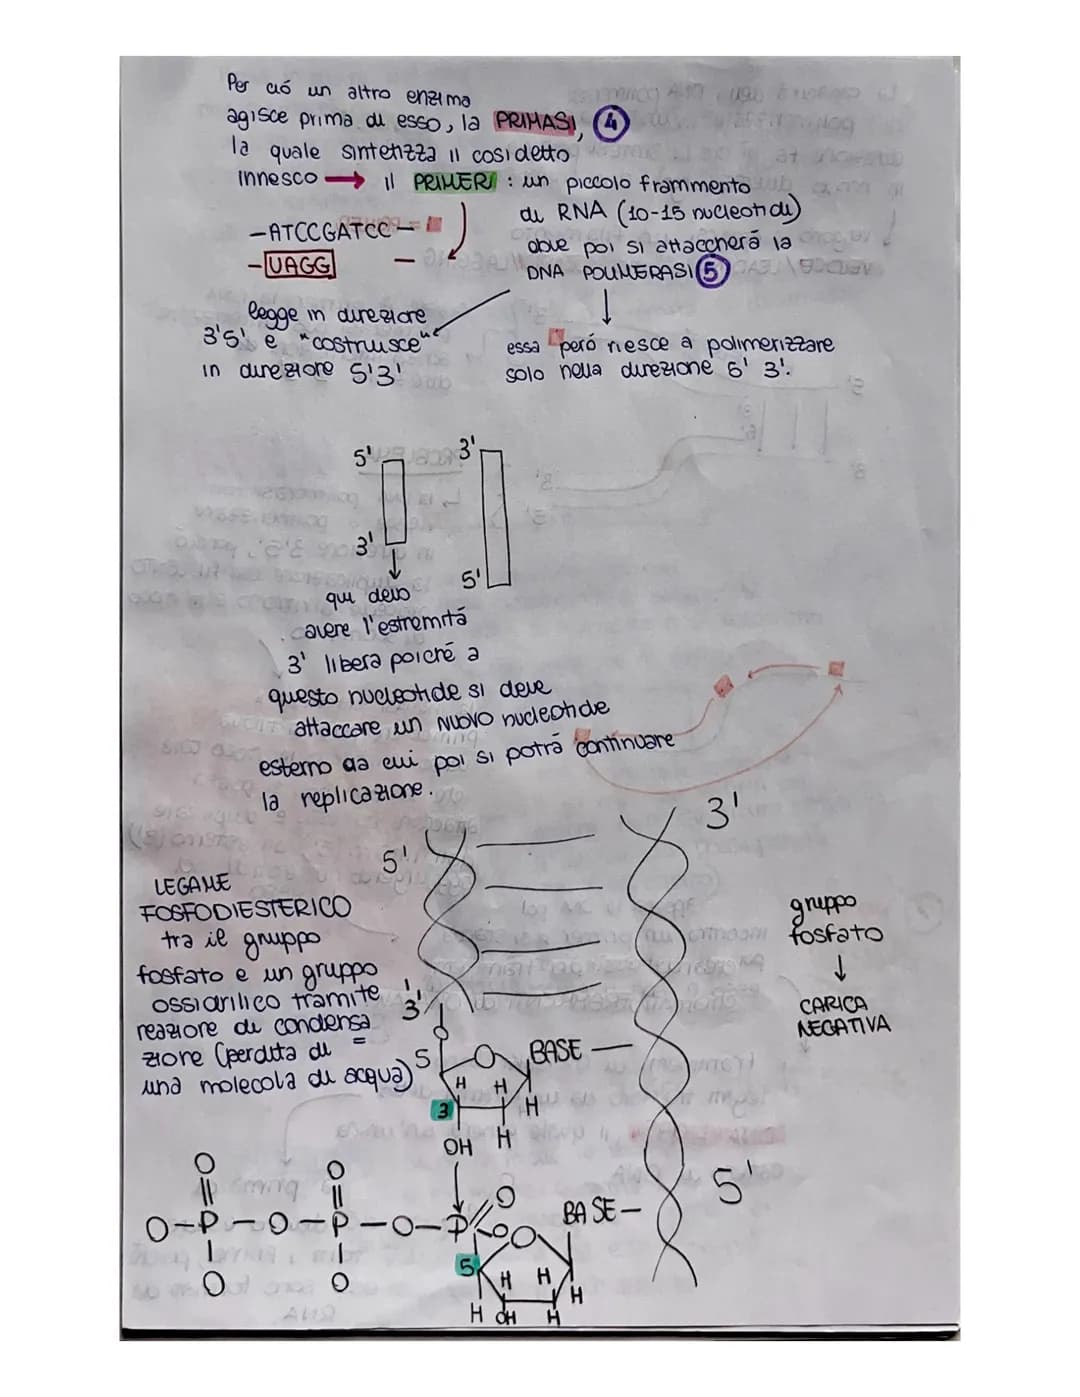 Per ció un altro enzima
agisce prima di esso, la PRIMASI, 4
la quale sintetizza il cosidetto
innesco → il PRIMER : un piccolo frammento
di RNA (10-15 nucleotidi)
dove poi si attaccherá la
DNA POLIMERASI 5
-ATCCGATCC-
-UAGG -
legge in direzione
3'5' e "costruisce"
in direzione 5'3'
essa peró riesce a polimerizzare
solo nella direzione 5' 3'.
5' 3'
3' 5'
qui devo
avere l'estremitá
3' libera poiché a
questo nucleotide si deve
attaccare un nuovo nucleotide
esterno da cui poi si potrá continuare
la replicazione.
5' 3'
LEGAME
FOSFODIESTERICO
tra il gruppo
fosfato e un gruppo
ossidrilico tramite
reazione di condensa
zione (perdita di =
una molecola di acqua)
gruppo
fosfato
↓
CARICA
NEGATIVA
3'
O
5 O BASE
H H
3 H
OH H
5'
O O O
O-P-O-P-O-P O O BASE-
O O
5 H H H
H OH H